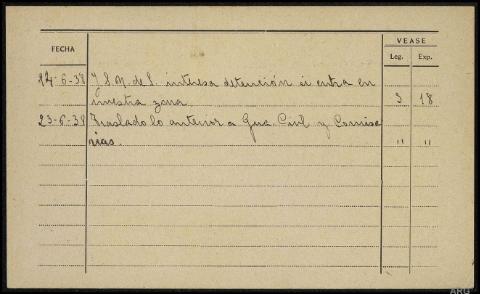 VEASE
FECHA Leg. Exp.
14-6-38 J.S.M. de S. interesa detención si entra en
nuestra zona. 3 18
23-6-38 Traslado lo anterior a Gua. Civil y Comisa
rias. " "
ARG